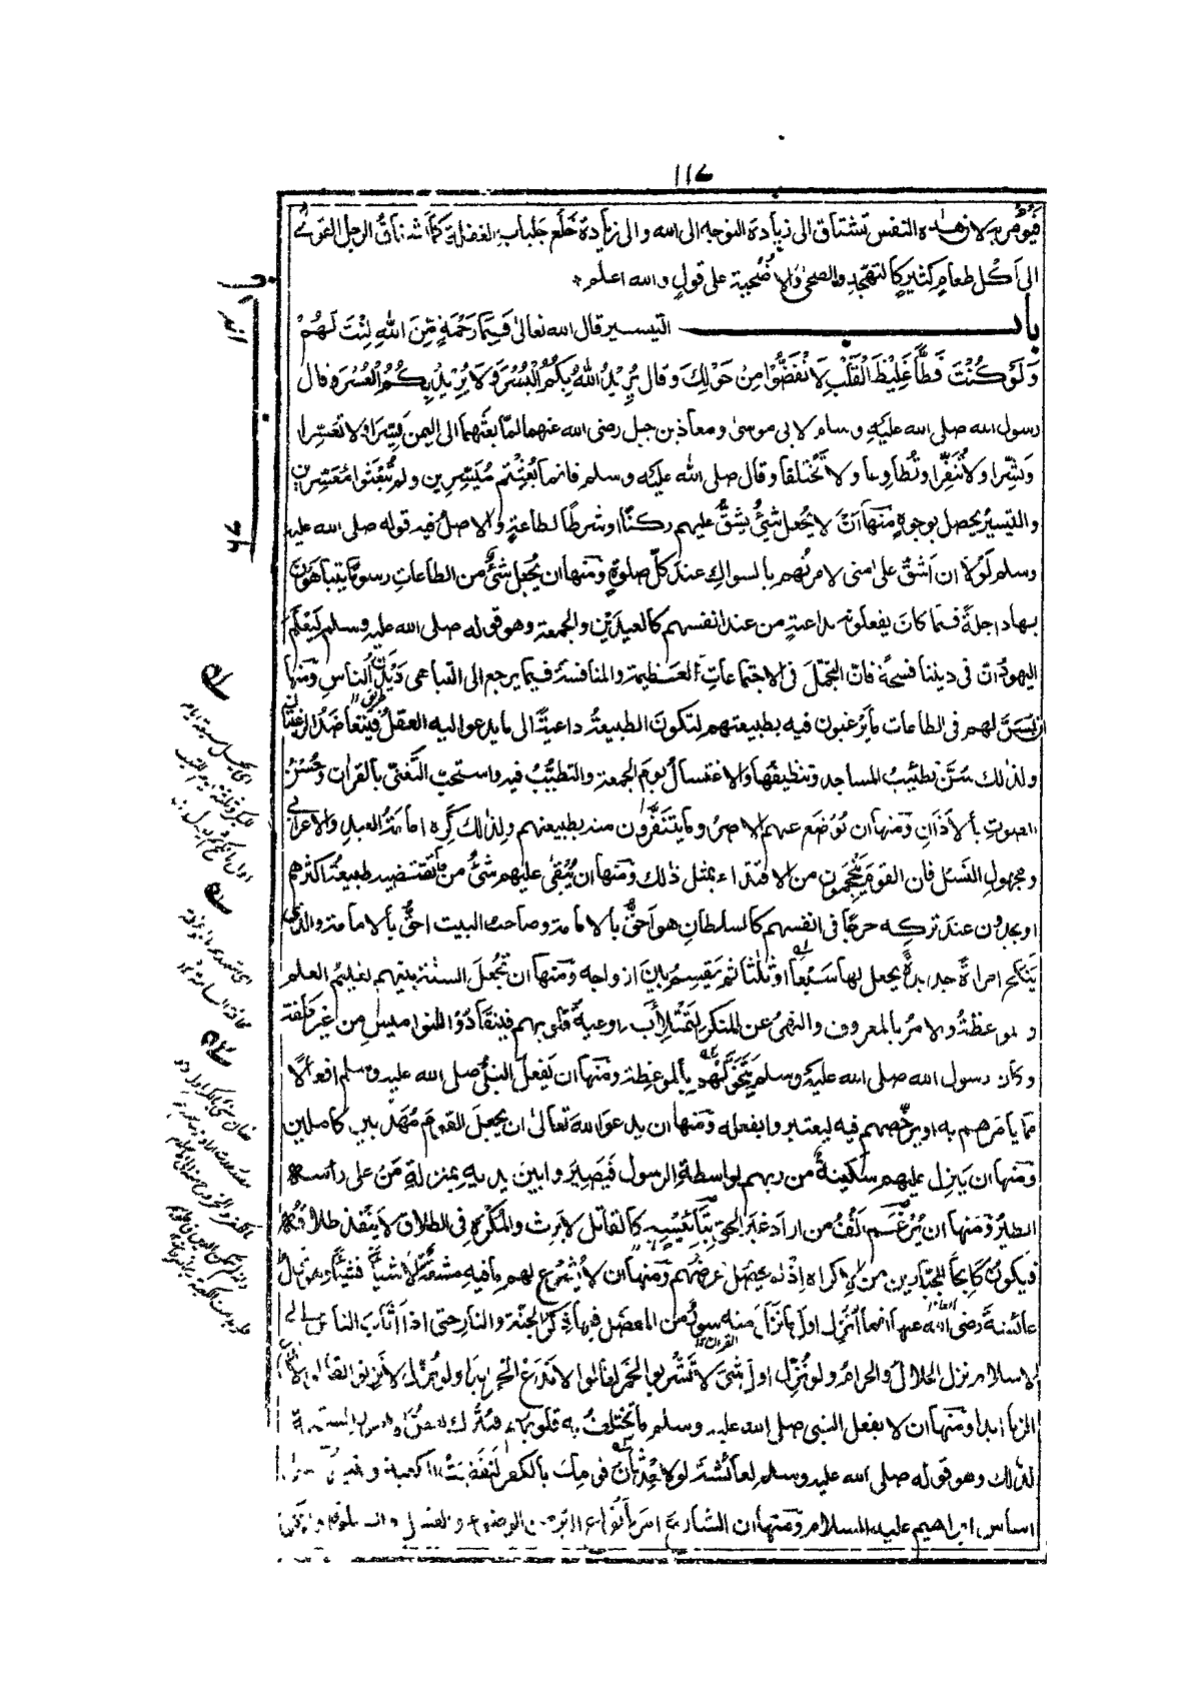 ١١٧
فيؤمر به لان هذه النفس تشتاق الى زيادة التوجه الى الله والى زيادة خلع جلباب الغفلة كما
الى اكل طعام كثير كالتهجد والضحى والاضحية على قول والله اعلم
باب التيسير قال الله تعالى فَبِمَا رَحْمَةٍ مِّنَ اللهِ لِنْتَ لَهُمْ
وَلَوْ كُنْتَ فَظًّا غَلِيْظَ الْقَلْبِ لَانْفَضُّوْا مِنْ حَوْلِكَ وقال يُرِيْدُ اللهُ بِكُمُ الْيُسْرَ وَلَا يُرِيْدُ بِكُمُ الْعُسْرَ وقال
رسول الله صلى الله عليه وسلم لابى موسى ومعاذ بن جبل رضى الله عنهما لما بعثهما الى اليمن يسرا ولا تعسرا
وبشرا ولا تنفرا وتطاوعا ولا تختلفا وقال صلى الله عليه وسلم فانما بعثتم ميسرين ولم تبعثوا معسرين
والتيسير يحصل بوجوه منها ان لا يجعل شئ يشق عليهم ركنا او شرطا لطاعة والاصل فيه قوله صلى الله عليه
وسلم لولا ان اشق على امتى لامرتهم بالسواك عند كل صلوة ومنها ان يجعل شئ من الطاعات رسوما يتباهون
بها داخلة فيما كان يفعلونه بداعية من عند انفسهم كالعيدين والجمعة وهو قوله صلى الله عليه وسلم ليعلم
اليهود ان فى ديننا فسحة فان التجمل فى الاجتماعات العظيمة والمنافسة فيما يرجع الى التباهى ديدن الناس ومنها
ان يسن لهم فى الطاعات ما يرغبون فيه بطبيعتهم لتكون الطبيعة داعية الى ما يدعو اليه العقل فيتعاضد الرغبتان
ولذلك سن تطييب المساجد وتنظيفها والاغتسال يوم الجمعة والتطيب فيه واستحب التغنى بالقران وحسن
الصوت بالاذان ومنها ان يوضع عنهم الاصر وما يتنفرون منه بطبيعتهم ولذلك كره امامة العبد والاعرابى
ومجهول النسب فان القوم يحجمون من الاقتداء بمثل ذلك ومنها ان يبقى عليهم شئ مما تقتضيه طبيعة اكثرهم
او يجدون عند تركه حرجا فى انفسهم كالسلطان هو احق بالامامة وصاحب البيت احق بالامامة والذى
ينكح امراة جديدة يجعل لها سبعا او ثلثا ثم يقسم بين ازواجه ومنها ان تجعل السنة بينهم تعليم العلم
والموعظة والامر بالمعروف والنهى عن المنكر لتمتلئ به اوعية قلوبهم فينقادوا للنواميس من غير كلفة
وكان رسول الله صلى الله عليه وسلم يتخولهم بالموعظة ومنها ان يفعل النبى صلى الله عليه وسلم افعالا
مما يامرهم به او يرخصهم فيه ليعتبروا بفعله ومنها ان يدعو الله تعالى ان يجعل القوم مهذبين كاملين
ومنها ان ينزل عليهم سكينة من ربهم بواسطة الرسول فيصيروا بين يديه بمنزلة من على راسه
الطير ومنها ان يرغم انف من اراد غير الحق بتاييسه كالقاتل لا يرث والمكره فى الطلاق لا ينفذ طلاقه
فيكون كابحا للجبارين من الاكراه اذ لم يحصل غرضهم ومنها ان لا يشرع لهم ما فيه مشقة الا شيئا فشيئا وهو قول
عائشة رضى الله عنها انما انزل اول ما نزل منه سور من المفصل فيها ذكر الجنة والنار حتى اذا ثاب الناس الى
الاسلام نزل الحلال والحرام ولو نزل اول شئ لا تشربوا الخمر لقالوا لا ندع الخمر ابدا ولو نزل لا تزنوا لقالوا لا ندع
الزنا ابدا ومنها ان لا يفعل النبى صلى الله عليه وسلم ما تختلف به قلوبهم فيترك بعض الامور المستحبة
لذلك وهو قوله صلى الله عليه وسلم لعائشة لولا حدثان قومك بالكفر لنقضت الكعبة وبنيتها على
اساس ابراهيم عليه السلام ومنها ان الشارع امر بانواع البر من الوضوء والغسل والصلوة